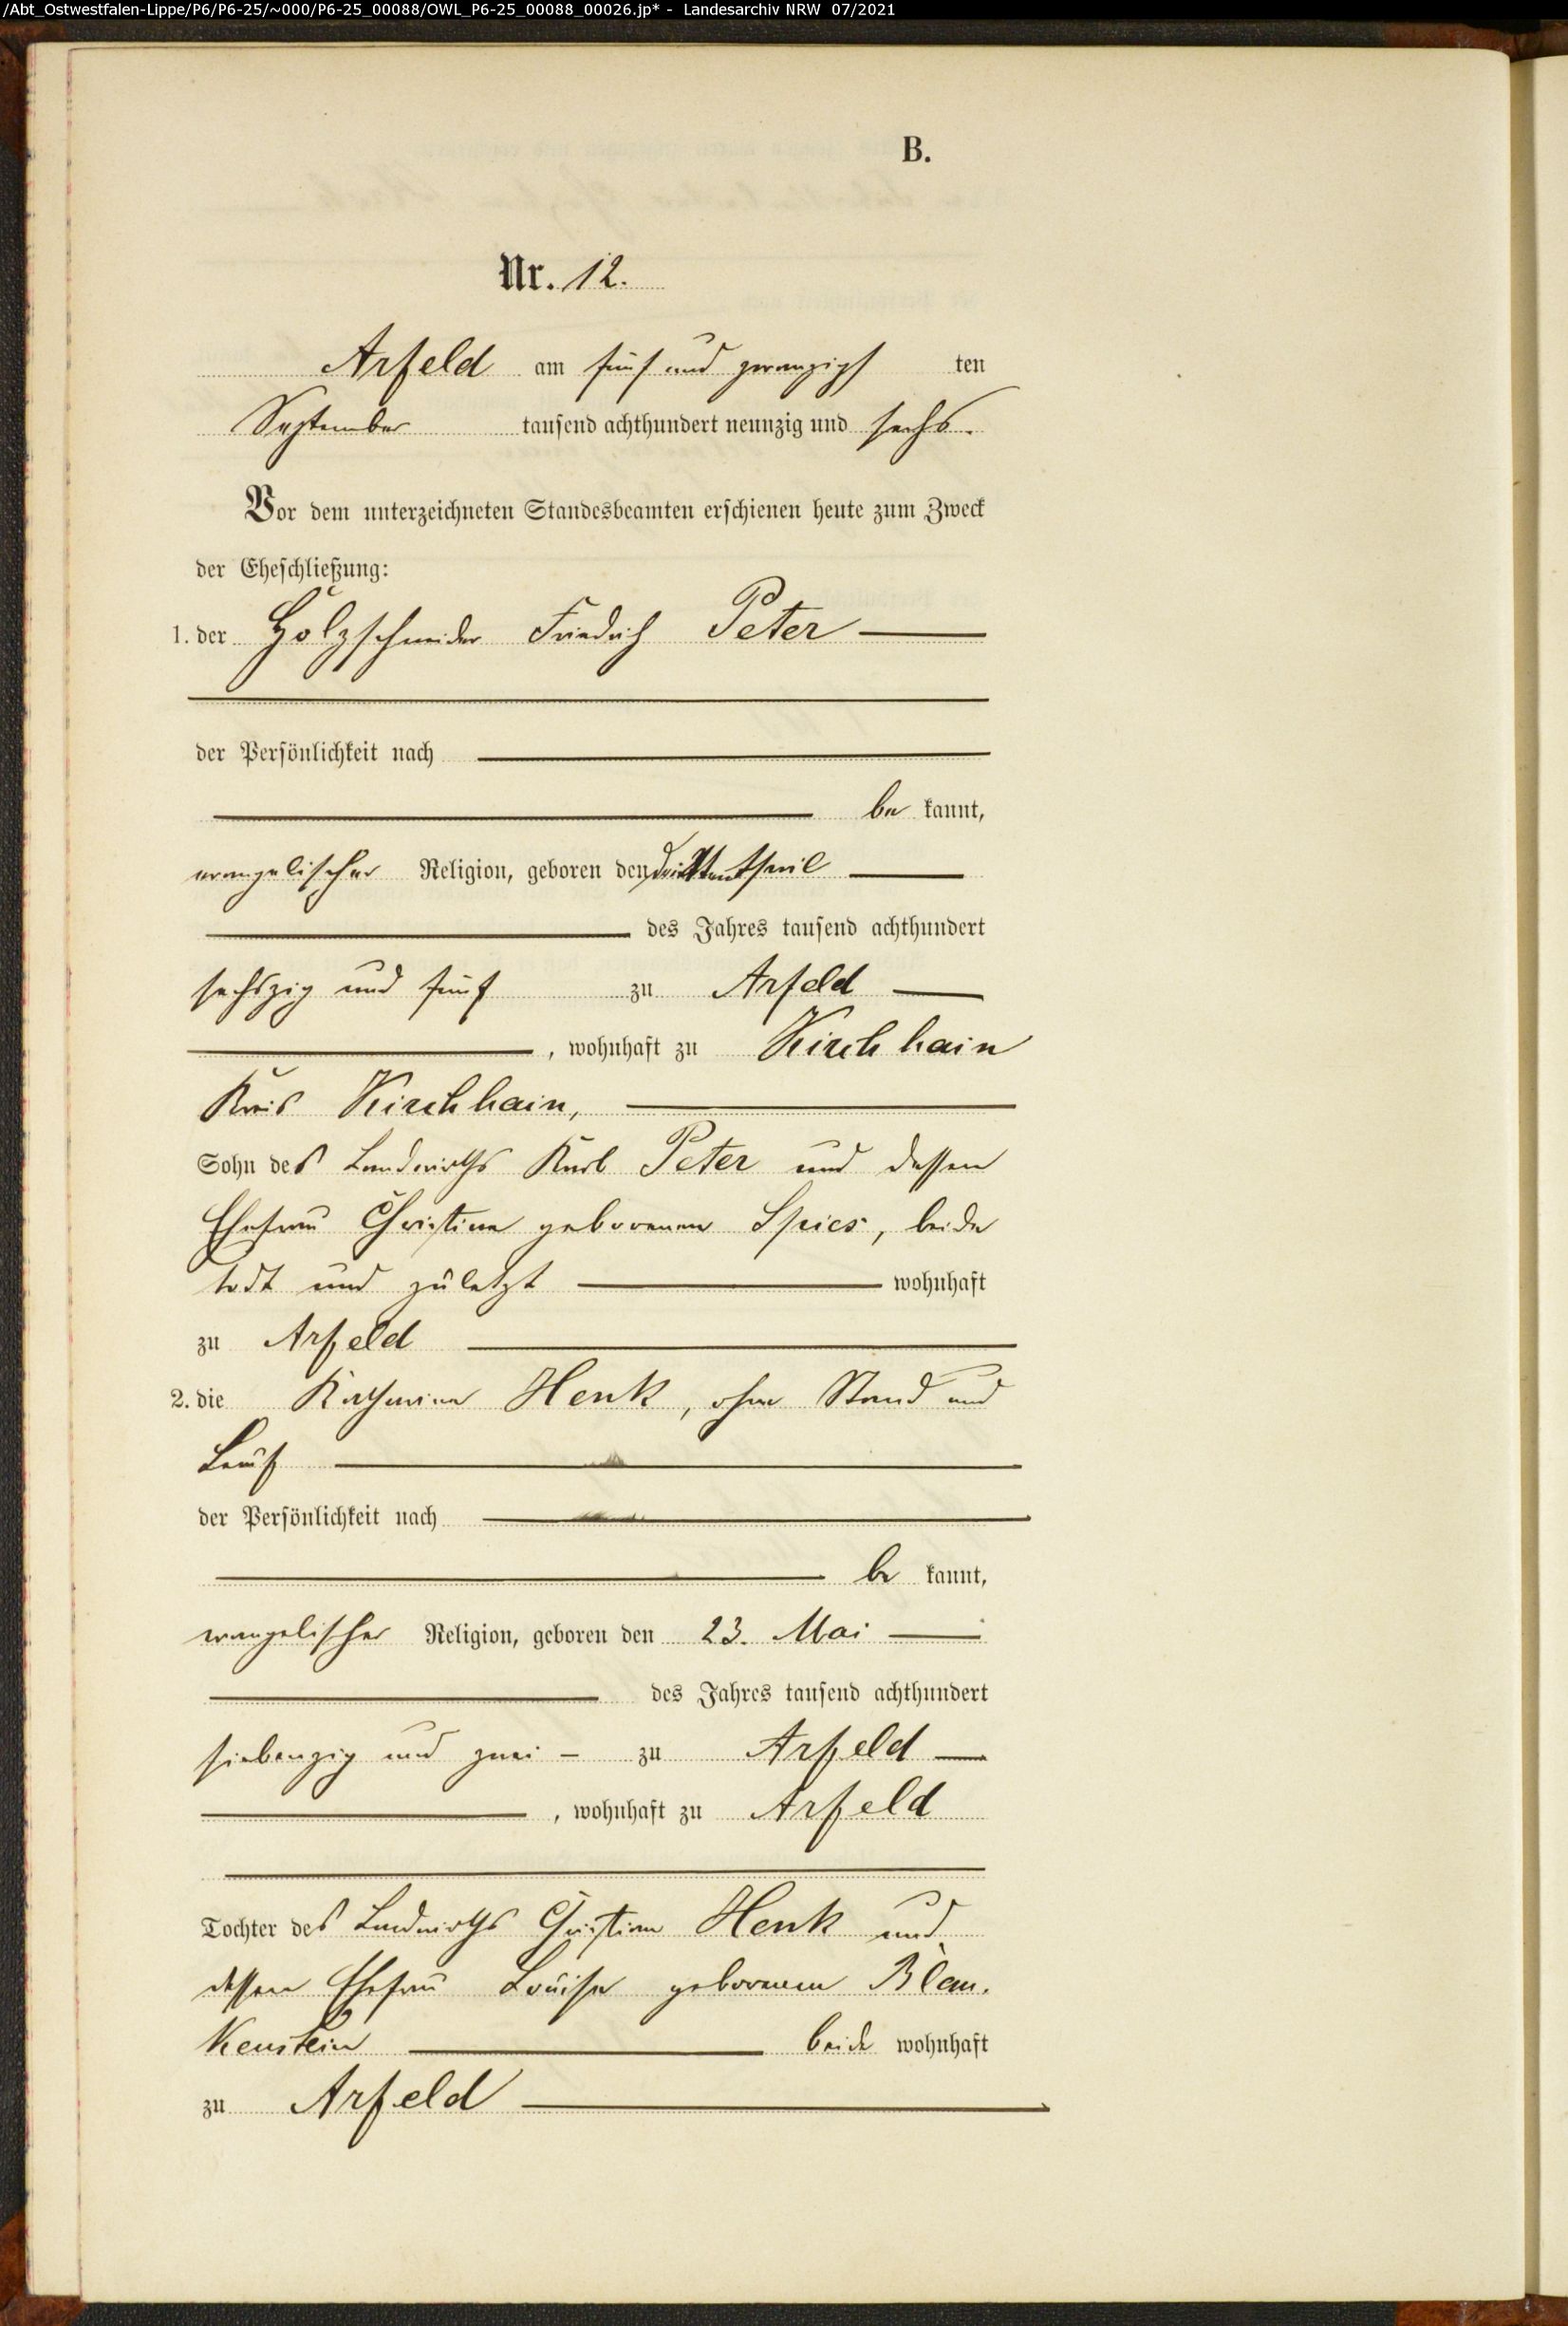 /Abt_Ostwestfalen-Lippe/P6/P6-25/~000/P6-25_00088/OWL_P6-25_00088_00026.jp* - Landesarchiv NRW 07/2021
B.
Nr. 12.
Arfeld am fünf und zwanzigs ten
September tausend achthundert neunzig und sechs.
Vor dem unterzeichneten Standesbeamten erschienen heute zum Zweck
der Eheschließung:
1. der Holzschneider Friedrich Peter
der Persönlichkeit nach
be kannt,
evangelischer Religion, geboren den
des Jahres tausend achthundert
sechszig und fünf zu Arfeld
, wohnhaft zu Kirchhain
Kreis Kirchhain,
Sohn des Landwirths Karl Peter und dessen
Ehefrau Christine geborenen Spies, beide
todt und zuletzt wohnhaft
zu Arfeld
2. die Katharine Henk, ohne Stand und
der Persönlichkeit nach
be kannt,
evangelischer Religion, geboren den 23. Mai
des Jahres tausend achthundert
siebenzig und zwei - zu Arfeld
, wohnhaft zu Arfeld
Tochter des Landwirths Christian Henk und
dessen Ehefrau Louise geborenen Blan-
kenstein beide wohnhaft
zu Arfeld